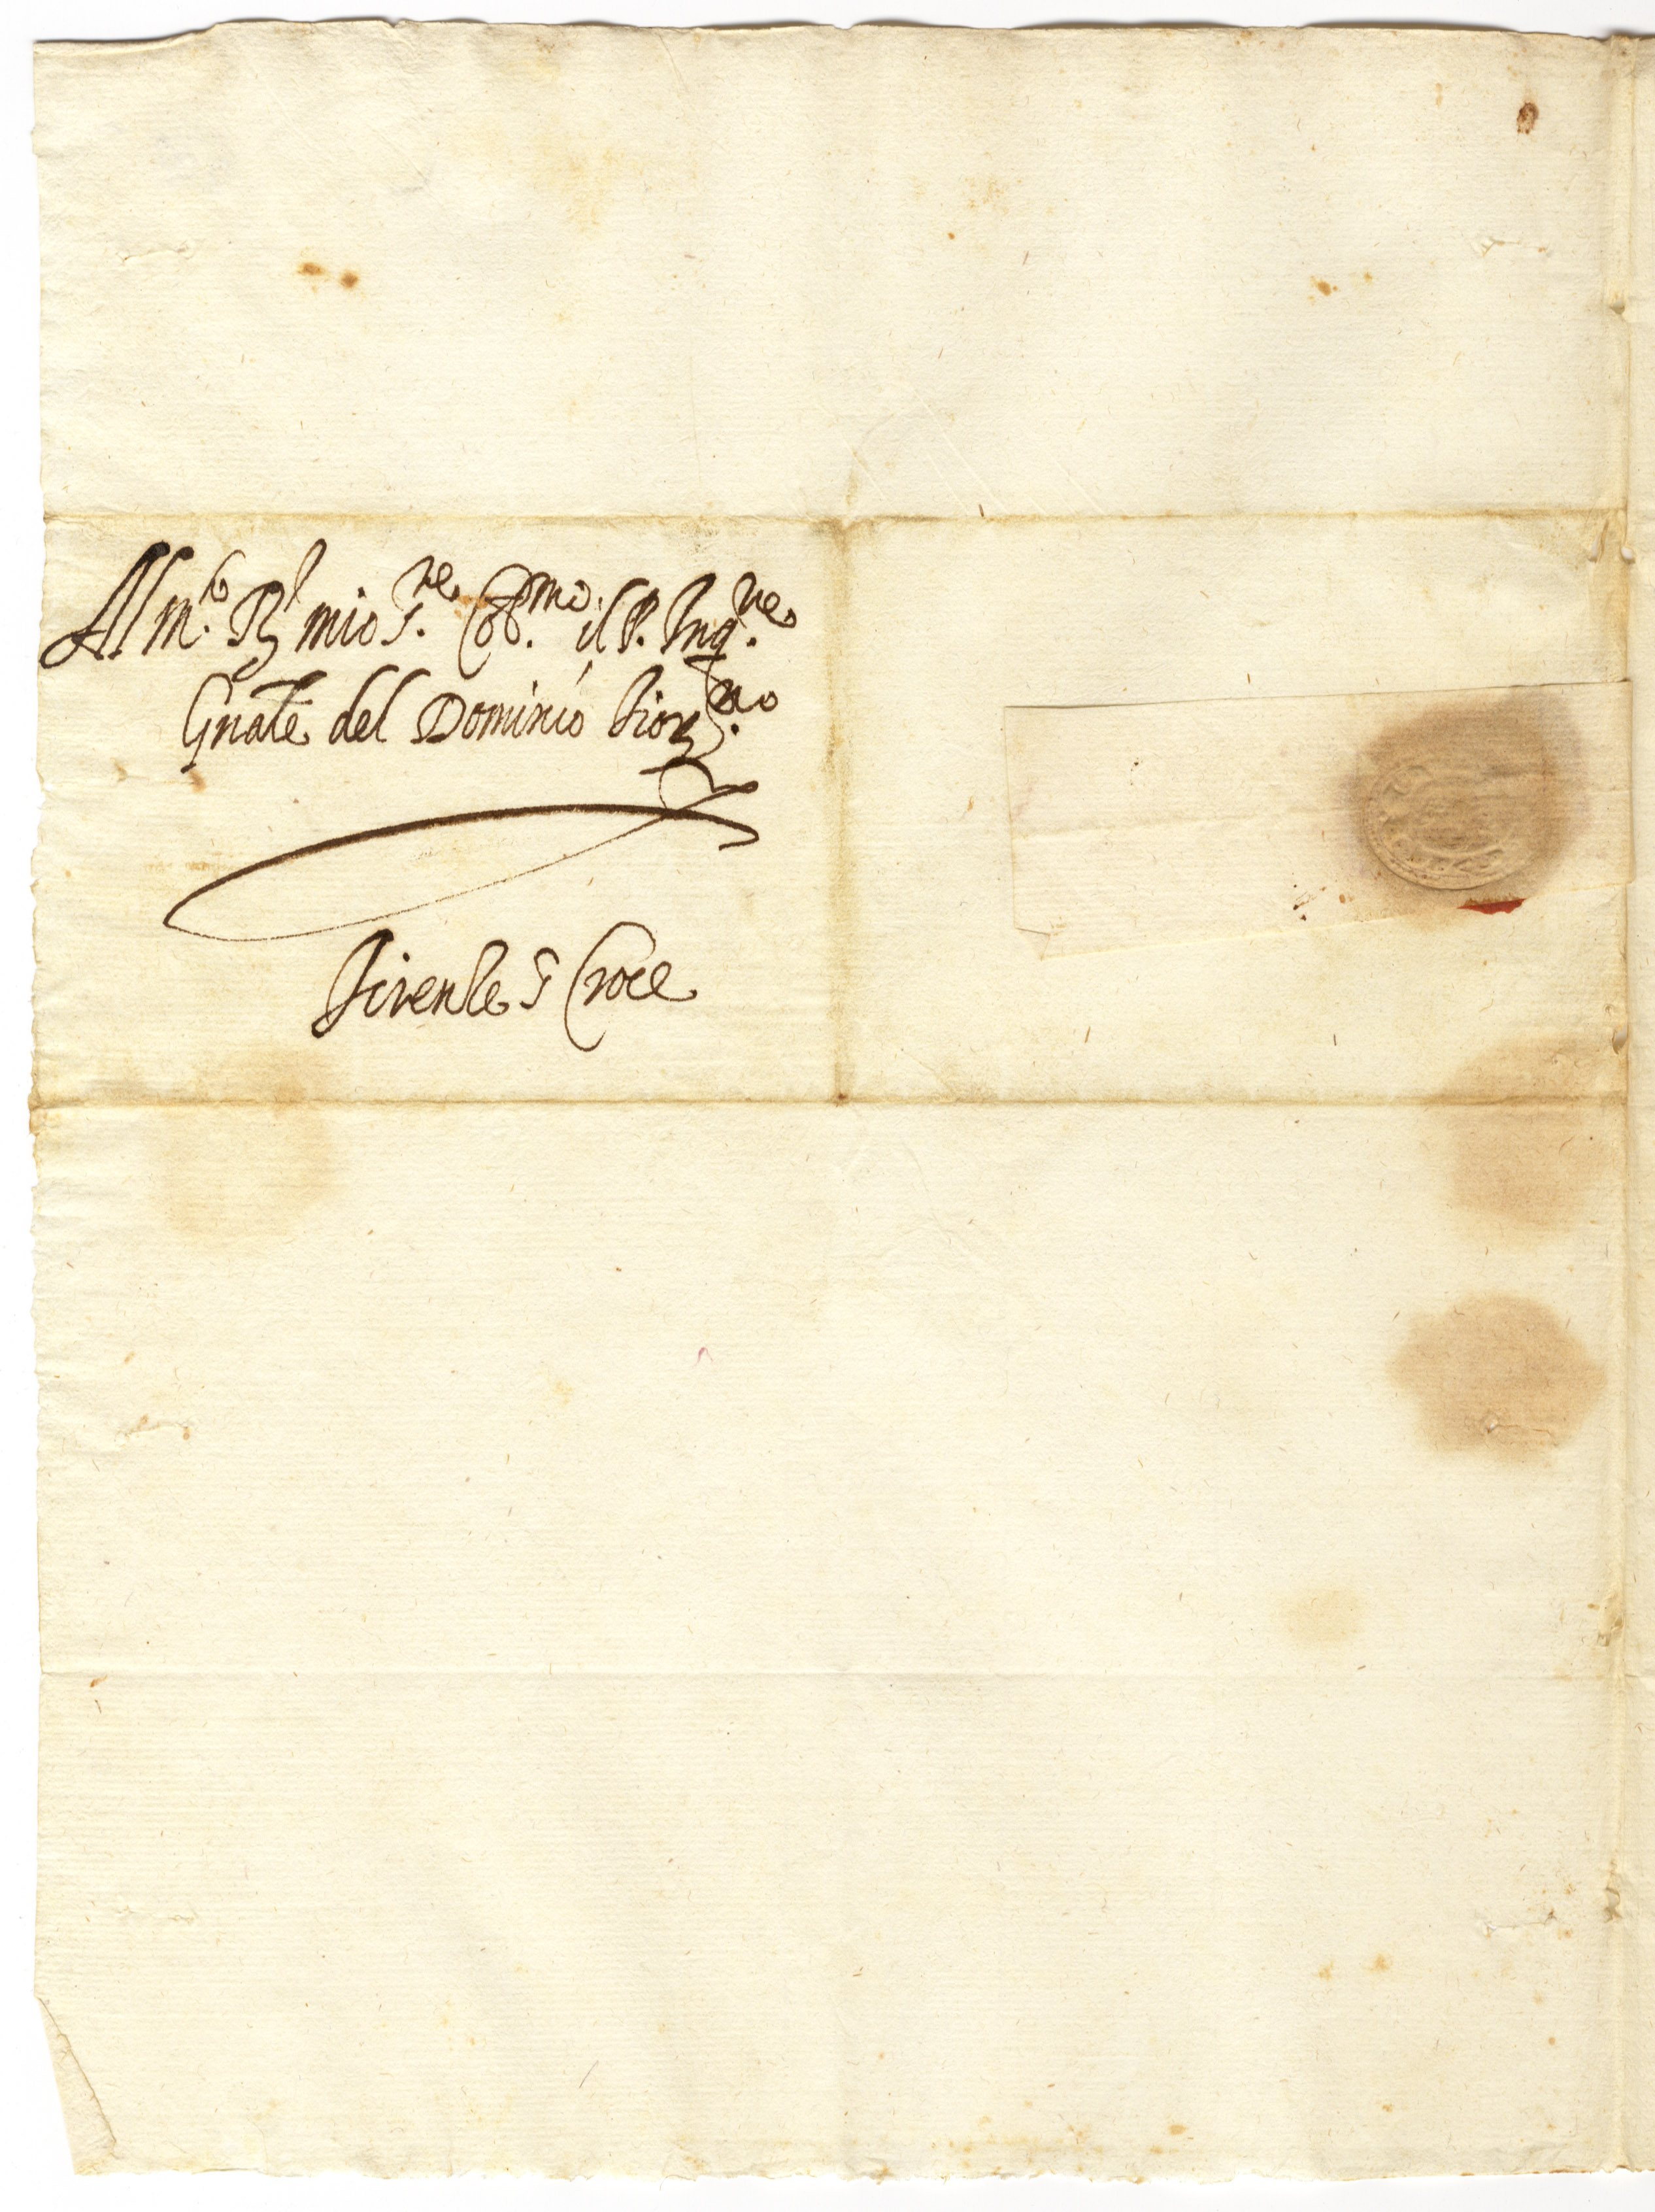 Al m.to R.do mio S.re Oss.mo il P. Inq.re
Gñale del Dominio Fior.no
Firenze S Croce